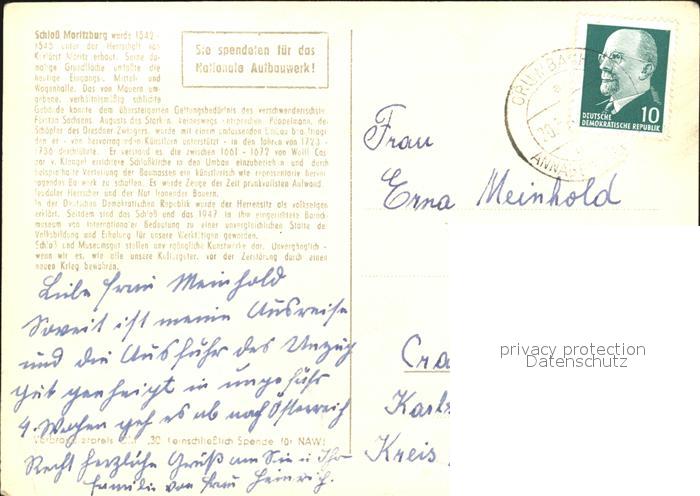 Schloß Moritzburg wurde 1542-
1545 unter der Herrschaft von
Kurfürst Moritz erbaut. Seine da-
malige Grundfläche umfaßte die
heutige Eingangs-, Mittel- und
Wagenhalle. Das von Mauern um-
gebene, verhältnismäßig schlichte
Gebäude konnte dem übersteigerten Geltungsbedürfnis des verschwenderischsten
Fürsten Sachsens, Augusts des Starken, keineswegs entsprechen. Pöppelmann, der
Schöpfer des Dresdner Zwingers, wurde mit einem umfassenden Umbau beauftragt,
den er - von hervorragenden Künstlern unterstützt - in den Jahren von 1723 -
1736 durchführte. Er verstand es, die zwischen 1661 - 1672 von Wolf Caspar
von Klengel errichtete Schloßkirche in den Umbau einzubeziehen und durch
beispielhafte Verteilung der Baumassen ein künstlerisch wie repräsentativ hervor-
ragendes Bauwerk zu schaffen. Es wurde Zeuge der Zeit prunkvollsten Aufwands
feudaler Herrscher und der Not fronender Bauern.
In der Deutschen Demokratischen Republik wurde der Herrensitz als volkseigen
erklärt. Seitdem sind das Schloß und das 1947 in ihm eingerichtete Barock-
museum von internationaler Bedeutung zu einer unvergleichlichen Stätte der
Volksbildung und Erholung für unsere Werktätigen geworden.
Schloß und Museumsgut stellen unvergängliche Kunstwerke dar. Unvergänglich -
wenn wir es, wie alle unsere Kulturgüter, vor der Zerstörung durch einen
neuen Krieg bewahren.
Sie spendeten für das
Nationale Aufbauwerk!
10
DEUTSCHE
DEMOKRATISCHE REPUBLIK
GRUMBACH
ANNAB
Frau
Erna Meinhold
Liebe Frau Meinhold
Soweit ist meine Ausreise
und die Ausfuhr des Umzug
gut genheigt in ungefähr
4. Wochen geh es ab nach Österreich
Verbraucherpreis DM -,30 (einschließlich Spende für NAW)
Recht herzliche Grüß an Sie u. Ihr
Familie von Frau Heinrich.
Cra
Karls
Kreis
privacy protection
Datenschutz